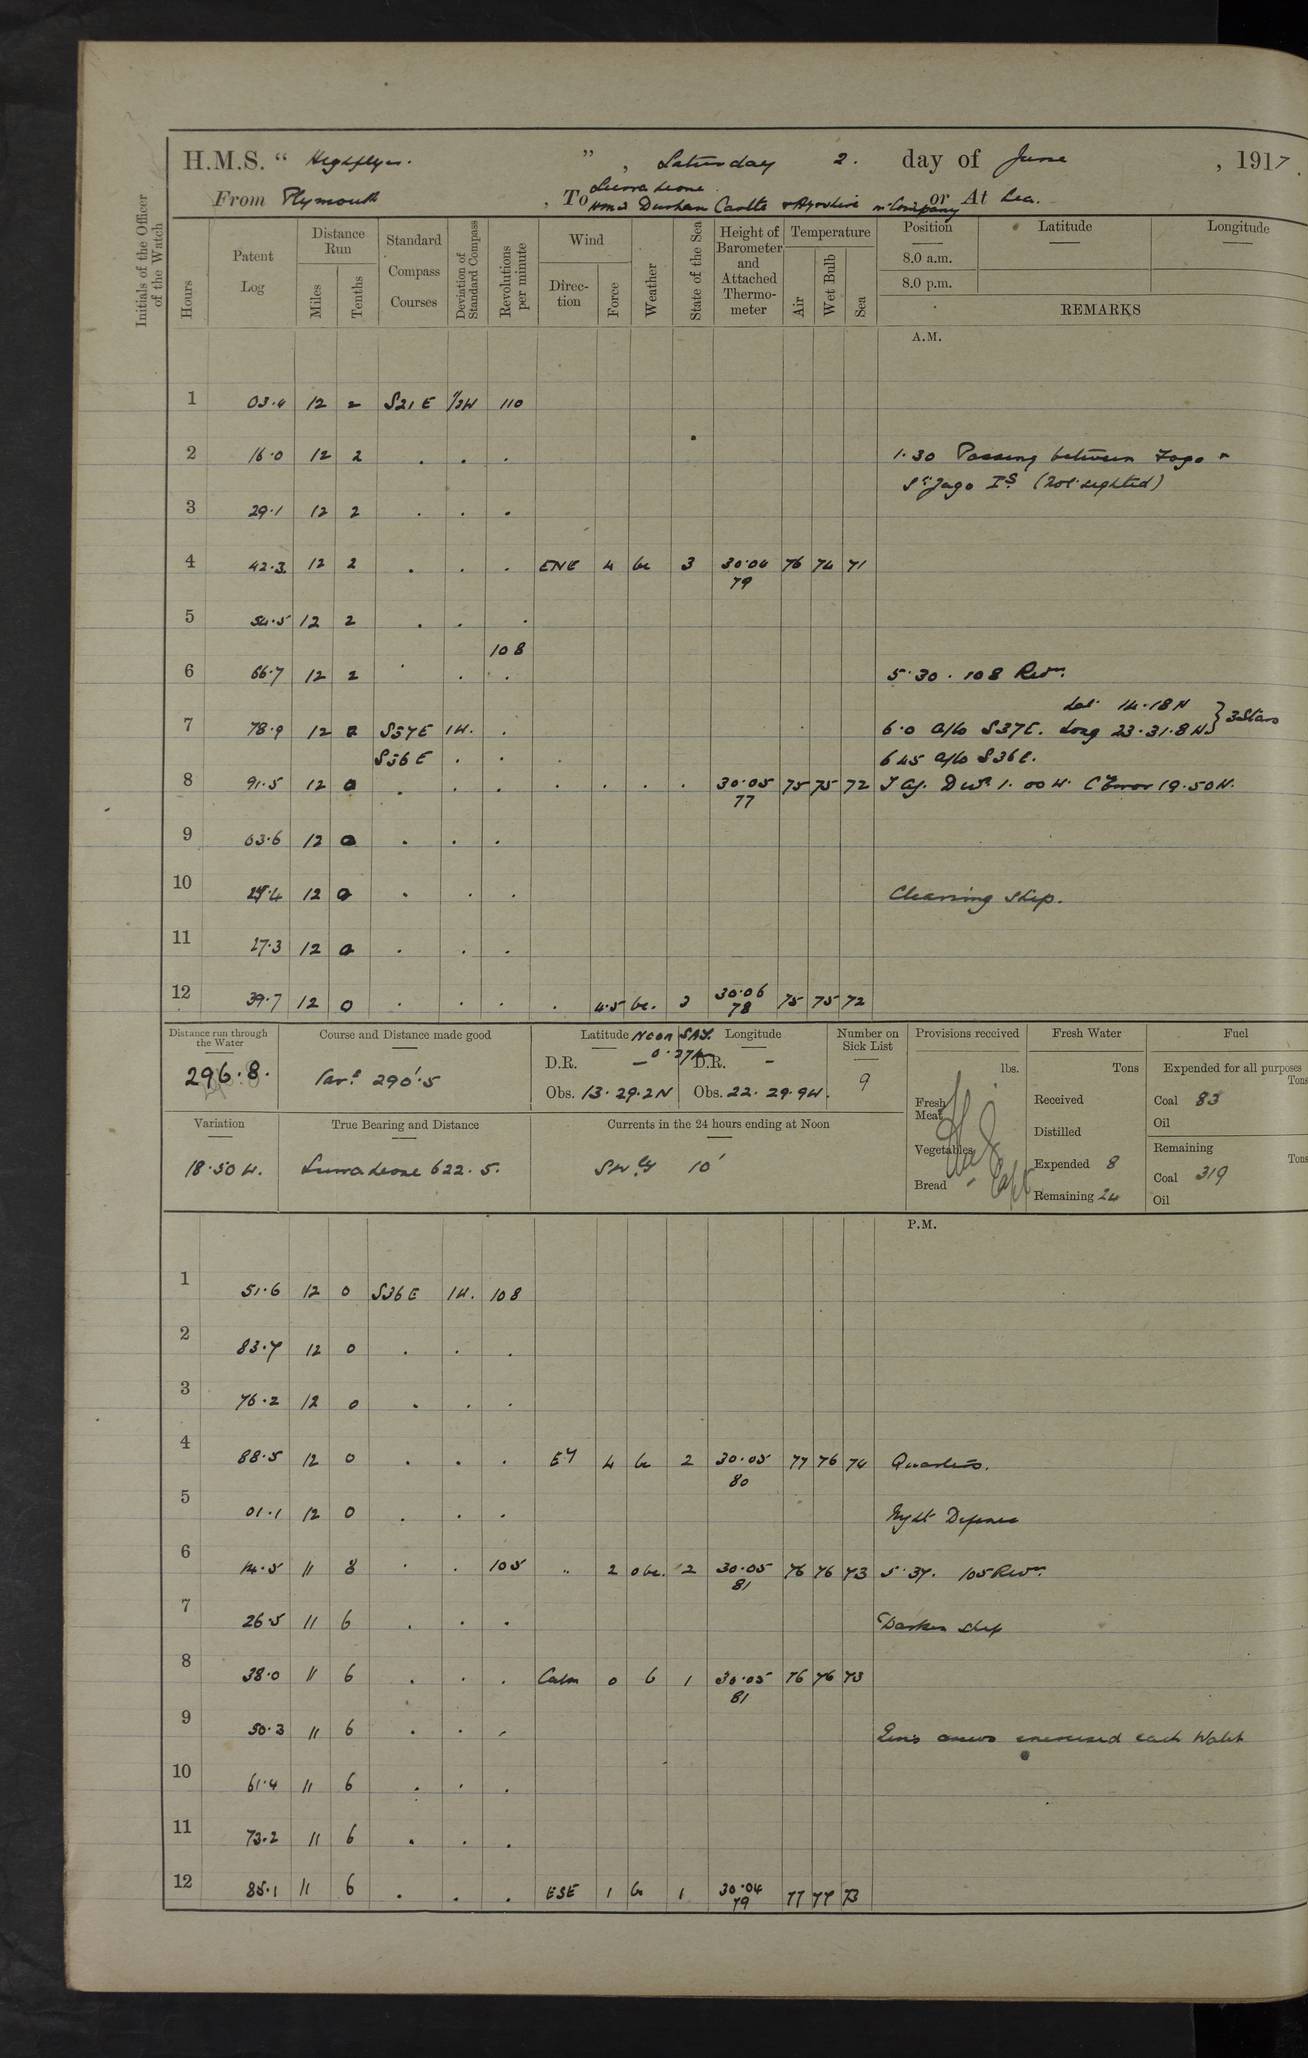 H.M.S. “ Highflyer. ” , Saturday 2. day of June , 1917.
Sierra Leone.
From Plymouth , To HMS Durham Castle + in Company or At Sea.
Initials of the Officer of the Watch
Hours Patent Log Distance Run Miles Tenths Standard Compass Courses Deviation of Standard Compass Revolutions per minute Wind Direction Force Weather State of the Sea Height of Barometer and Attached Thermometer Temperature Air Wet Bulb Sea Position Latitude Longitude
8.0 a.m.
8.0 p.m.
REMARKS
A.M.
1 03.4 12 2 S21E 1/2W 110
2 16.0 12 2 . . . 1.30 Passing between Fogo +
St Jago Is. (Not sighted)
3 29.1 12 2 . . .
4 42.3 12 2 . . . ENE 4 bc 3 30.04 76 74 71
79
5 54.5 12 2 . . .
108
6 66.7 12 2 . . . 5.30 . 108 Revs.
Lat 14.18N } 3 Stars
7 78.9 12 0 S37E 1W. . 6.0 a/co S37E. Long 23.31.8W
S36E . . 6 45 a/co S36E.
8 91.5 12 0 . . . . . . . 30.05 75 75 72 Devn 1.00W. C Error 19.50W.
77
9 03.6 12 0 . . .
10 12 0 . . . Cleaning ship.
11 27.3 12 0 . . .
12 39.7 12 0 . . . . 4.5 bc. 3 30.06 75 75 72
78
Distance run through the Water Course and Distance made good Latitude Noon SAT. Longitude Number on Sick List Provisions received Fresh Water Fuel
296.8. 290'.5 D.R. — 0.27 D.R. — 9 lbs. Tons Expended for all purposes Tons
Obs. 13.29.2N Obs. 22.29.9W. Fresh Meat Received Coal 83
Oil
Variation True Bearing and Distance Currents in the 24 hours ending at Noon Vegetables Distilled Remaining Tons
18.50W. Sierra Leone 622.5. SWly 10' Bread Expended 8 Coal 319
Remaining 24 Oil
P.M.
1 51.6 12 0 S36E 1W. 108
2 83.7 12 0 . . .
3 76.2 12 0 . . .
4 88.5 12 0 . . . Ey 4 bc 2 30.05 77 76 74 Quarters.
80
5 01.1 12 0 . . . Night Defence
6 14.5 11 8 . . 105 " 2 obc. 2 30.05 76 76 73 5.37. 105 Revs.
81
7 26.5 11 6 . . . Darken ship
8 38.0 11 6 . . . Calm 0 b 1 30.05 76 76 73
81
9 50.3 11 6 . . . Guns crews exercised each Watch
10 61.4 11 6 . . .
11 73.2 11 6 . . .
12 85.1 11 6 . . . ESE 1 bc 1 30.04 77 77 73
79